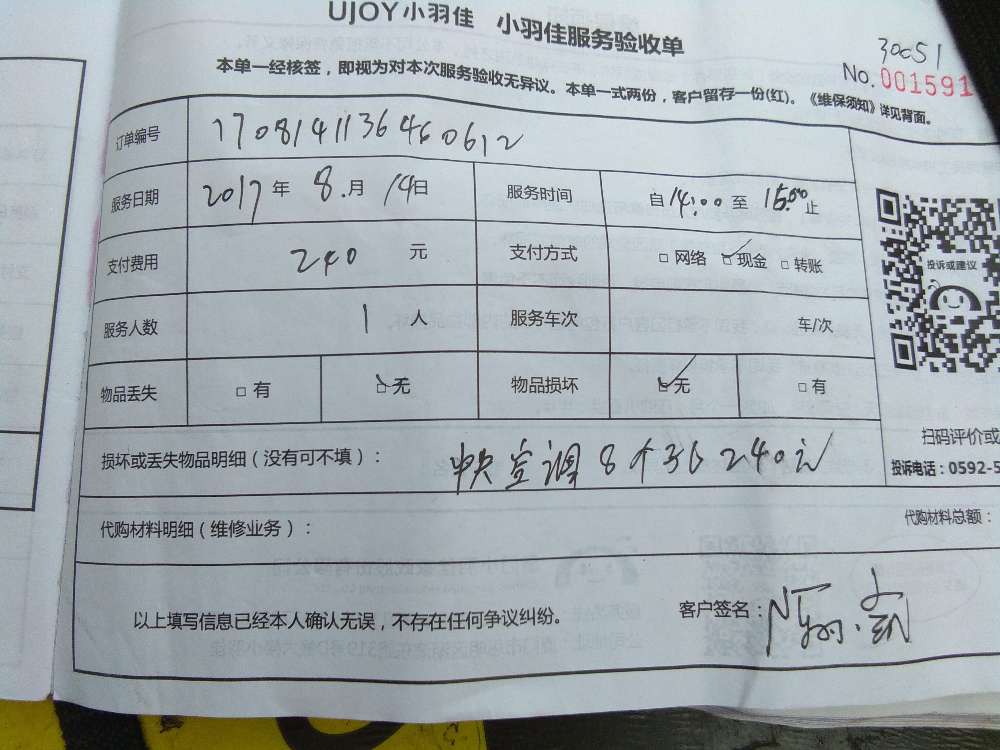 UJOY小羽佳 小羽佳服务验收单
30051
No.001591
本单一经核签，即视为对本次服务验收无异议。本单一式两份，客户留存一份(红)。《维保须知》详见背面。
订单编号 1708141136460612
服务日期 2017年 8.月 14日 服务时间 自14:00至 15:00止
支付费用 240 元 支付方式 □网络 ☑现金 □转账
服务人数 1 人 服务车次 车/次
物品丢失 □有 ☑无 物品损坏 ☑无 □有
投诉或建议
扫码评价或
投诉电话：0592-5
损坏或丢失物品明细（没有可不填）： 中央空调8个 240元
代购材料明细（维修业务）： 代购材料总额：
以上填写信息已经本人确认无误，不存在任何争议纠纷。 客户签名：